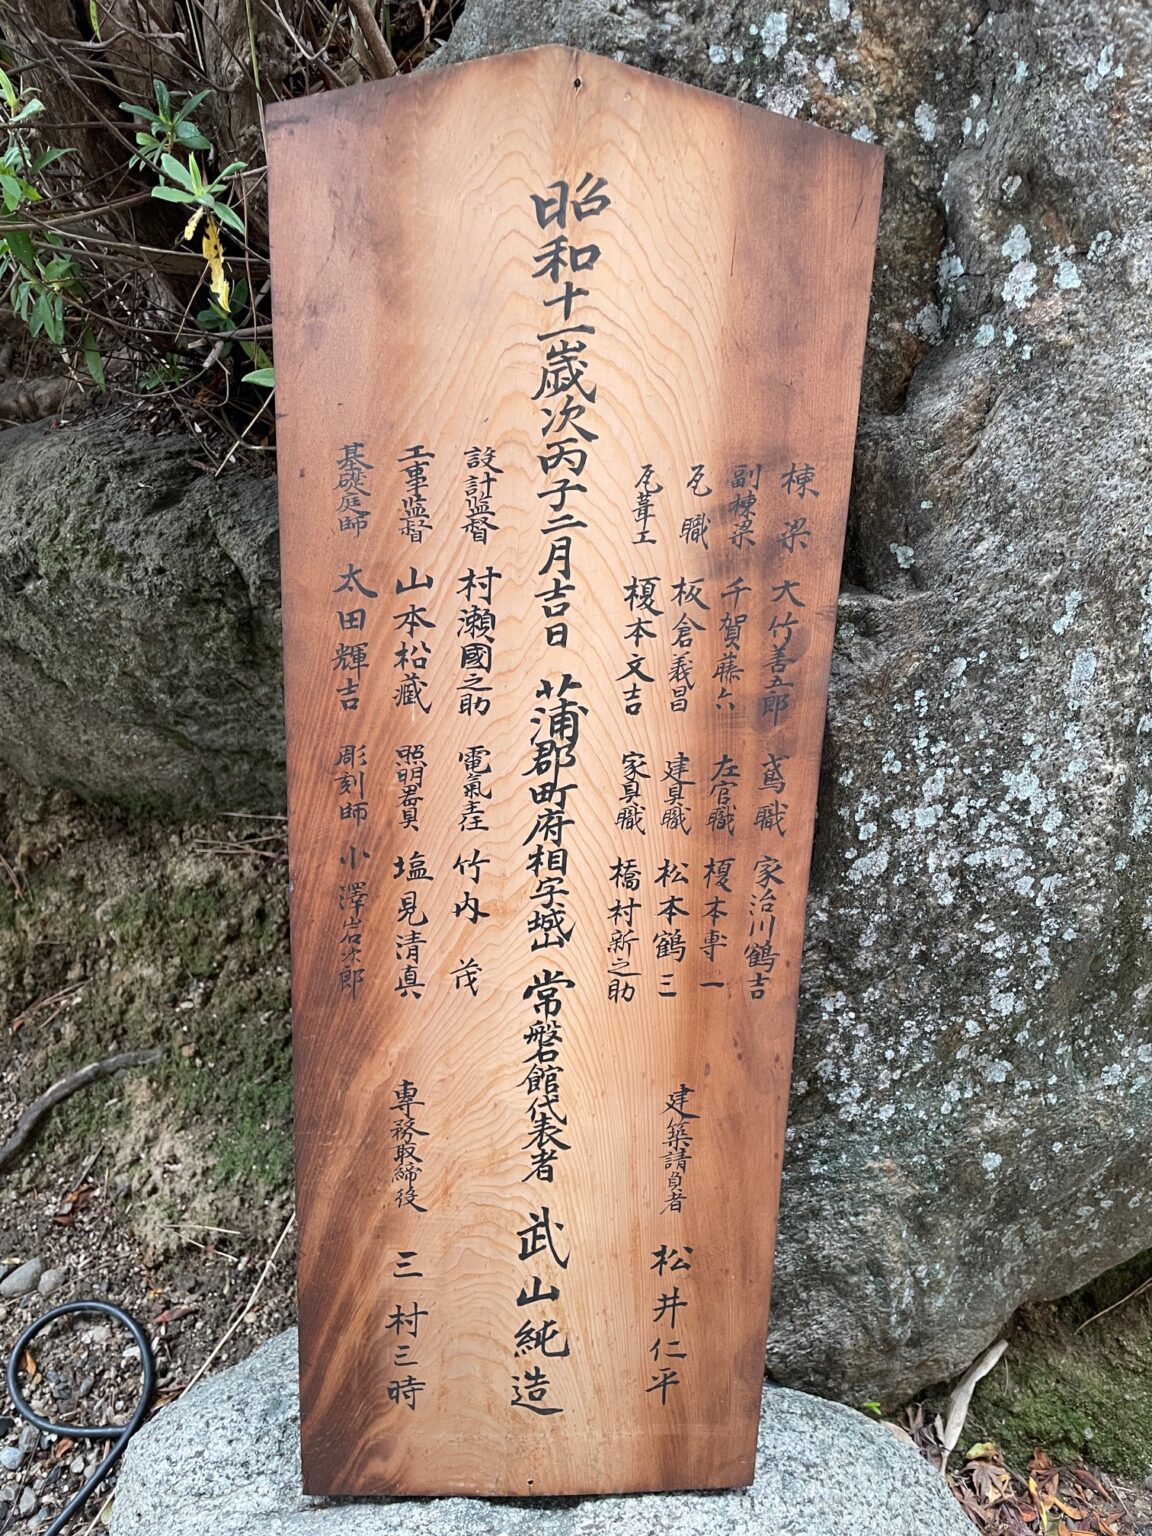 棟梁 大竹善五郎 鳶職 家治川鶴吉
副棟梁 千賀藤六 左官職 榎本専一
瓦職 板倉義昌 建具職 松本鶴三
瓦葺工 榎本文吉 家具職 橋村新之助
建築請負者 松井仁平
昭和十一歳次丙子二月吉日 蒲郡町府相字城山 常磐館代表者 武山純造
設計監督 村瀬國之助 電氣主任 竹内茂
工事監督 山本松藏 照明器具 塩見清真
専務取締役 三村三時
基礎庭師 太田輝吉 彫刻師 小澤岩次郎